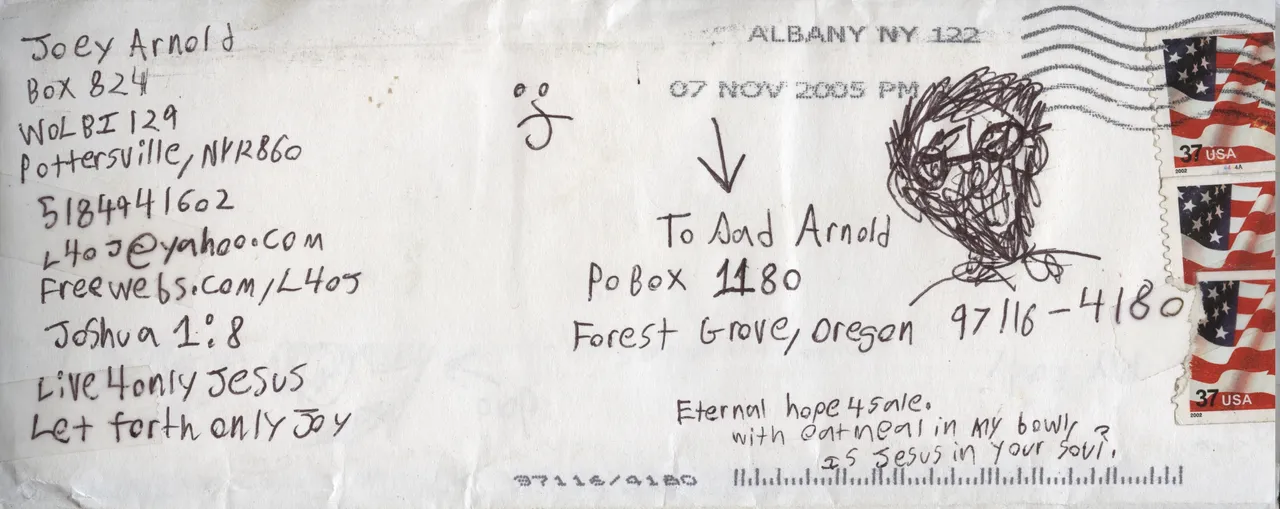 Joey Arnold
Box 824
WOLBI 129
Pottersville, NY 12860
5184941602
L4OJ@yahoo.com
Freewebs.com/L4OJ
Joshua 1:8
Live 4 only Jesus
Let forth only Joy
ALBANY NY 122
07 NOV 2005 PM
To Dad Arnold
PO Box 1180
Forest Grove, Oregon 97116-4180
Eternal hope 4 sale.
with oatmeal in my bowl,
is Jesus in your soul?
97116/4180
37 USA
2002
37 USA
2002